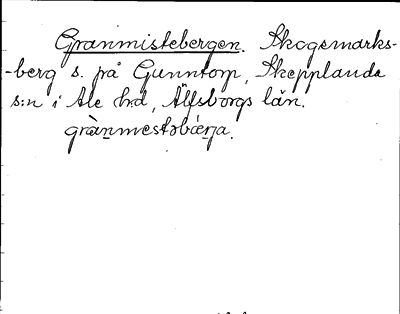 Granmistebergen. Skogsmarks-
-berg s. på Gunntorp, Skepplanda
s:n i Ale hd, Älfsborgs län.
grànmestəbærja.